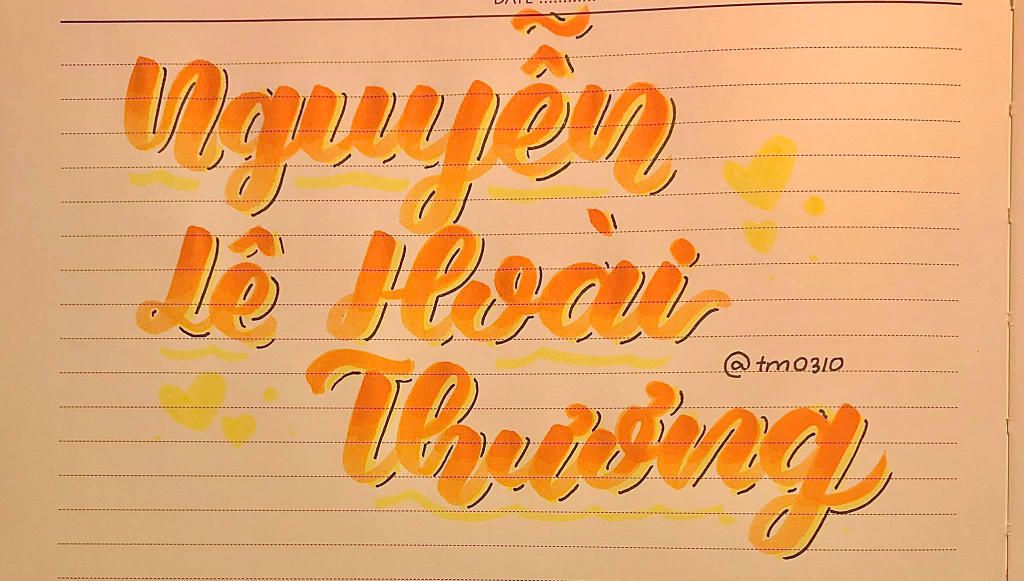 DATE ............
Nguyễn
Lê Hoài
@tm0310
Thương